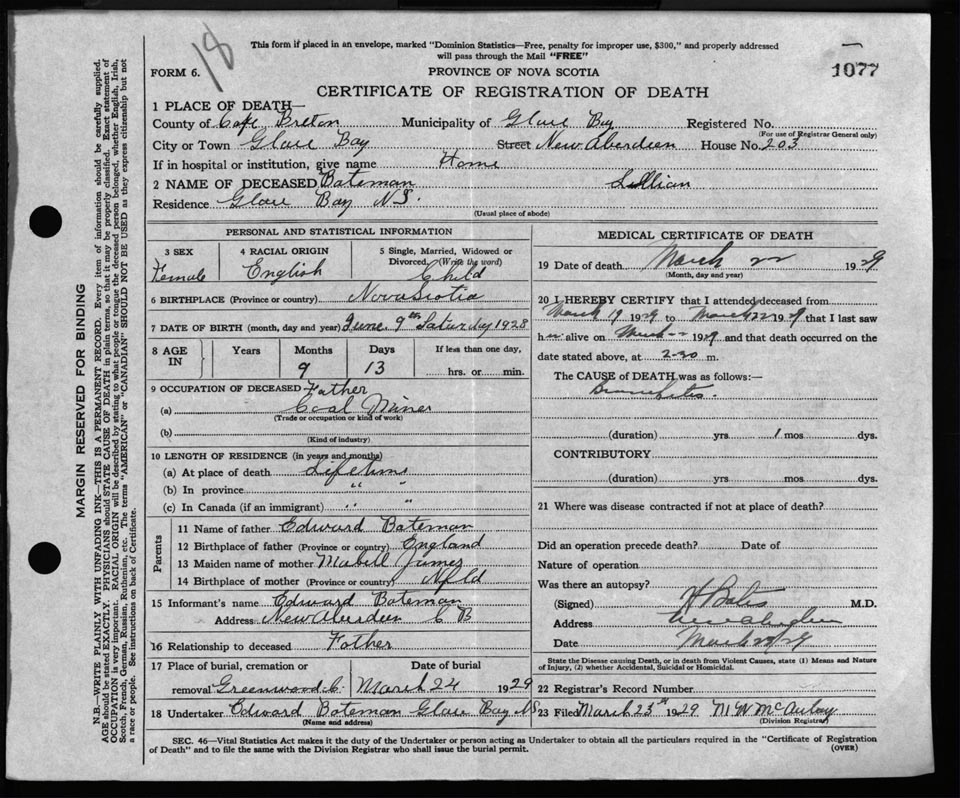 18
This form if placed in an envelope, marked "Dominion Statistics—Free, penalty for improper use, $300," and properly addressed
will pass through the Mail "FREE"
FORM 6.
PROVINCE OF NOVA SCOTIA
1077
CERTIFICATE OF REGISTRATION OF DEATH
1 PLACE OF DEATH—
County of Cape Breton Municipality of Glace Bay Registered No.
(For use of Registrar General only)
City or Town Glace Bay Street New Aberdeen House No. 203
If in hospital or institution, give name Home
2 NAME OF DECEASED Bateman Lillian
Residence Glace Bay N.S.
(Usual place of abode)
PERSONAL AND STATISTICAL INFORMATION
3 SEX 4 RACIAL ORIGIN 5 Single, Married, Widowed or
Divorced (Write the word)
Female English Child
6 BIRTHPLACE (Province or country) Nova Scotia
7 DATE OF BIRTH (month, day and year) June 9th Saturday 1928
8 AGE IN Years Months Days If less than one day,
9 13 hrs. or min.
9 OCCUPATION OF DECEASED Father
(a) Coal Miner
(Trade or occupation or kind of work)
(b)
(Kind of industry)
10 LENGTH OF RESIDENCE (in years and months)
(a) At place of death Lifetime
(b) In province " "
(c) In Canada (if an immigrant) " "
Parents
11 Name of father Edward Bateman
12 Birthplace of father (Province or country) England
13 Maiden name of mother Mabell James
14 Birthplace of mother (Province or country) Nfld
15 Informant's name Edward Bateman
Address New Aberdeen C B
16 Relationship to deceased Father
17 Place of burial, cremation or Date of burial
removal Greenwood C. March 24 1929
18 Undertaker Edward Bateman Glace Bay N S
(Name and address)
MEDICAL CERTIFICATE OF DEATH
19 Date of death March 22 1929
(Month, day and year)
20 I HEREBY CERTIFY that I attended deceased from
March 19 1929 to March 22 1929 that I last saw
h er alive on March 22 1929 and that death occurred on the
date stated above, at 2-30 m.
The CAUSE of DEATH was as follows:—
Bronchitis.
(duration) yrs. 1 mos dys.
CONTRIBUTORY
(duration) yrs mos dys.
21 Where was disease contracted if not at place of death?
Did an operation precede death? Date of
Nature of operation
Was there an autopsy?
(Signed) Bates M.D.
Address New Aberdeen
Date March 22/29
State the Disease causing Death, or in death from Violent Causes, state (1) Means and Nature
of Injury, (2) whether Accidental, Suicidal or Homicidal.
22 Registrar's Record Number
23 Filed March 23rd 1929 McAulay
(Division Registrar)
SEC. 46—Vital Statistics Act makes it the duty of the Undertaker or person acting as Undertaker to obtain all the particulars required in the "Certificate of Registration
of Death" and to file the same with the Division Registrar who shall issue the burial permit.
(OVER)
MARGIN RESERVED FOR BINDING
N.B.—WRITE PLAINLY WITH UNFADING INK—THIS IS A PERMANENT RECORD. Every item of information should be carefully supplied.
AGE should be stated EXACTLY. PHYSICIANS should STATE CAUSE OF DEATH in plain terms, so that it may be properly classified. Exact statement of
OCCUPATION is very important. RACIAL ORIGIN will be described by stating to what people or tongue the deceased person belonged, whether English, Irish,
Scotch, French, German, Russian, Ruthenian, etc. The terms "AMERICAN" or "CANADIAN" SHOULD NOT BE USED as they express citizenship but not
a race or people. See instructions on back of Certificate.